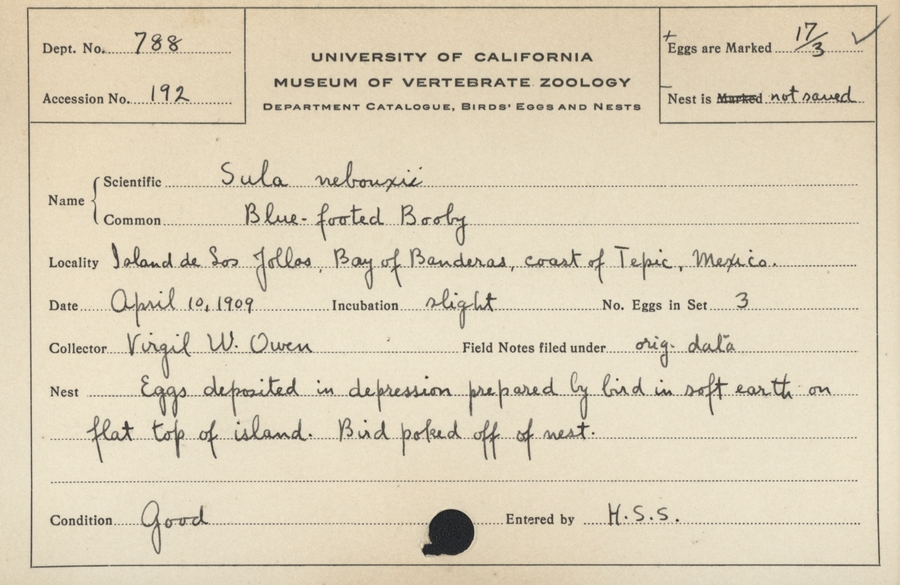 Dept. No. 788
Accession No. 192
UNIVERSITY OF CALIFORNIA
MUSEUM OF VERTEBRATE ZOOLOGY
DEPARTMENT CATALOGUE, BIRDS' EGGS AND NESTS
Eggs are Marked 17/3 ✓
Nest is Marked not saved
Name { Scientific Sula nebouxii
Common Blue-footed Booby
Locality Island de Los Jollas, Bay of Banderas, coast of Tepic, Mexico.
Date April 10, 1909 Incubation slight No. Eggs in Set 3
Collector Virgil W. Owen Field Notes filed under orig. data
Nest Eggs deposited in depression prepared by bird in soft earth on
flat top of island. Bird poked off of nest.
Condition Good Entered by H.S.S.